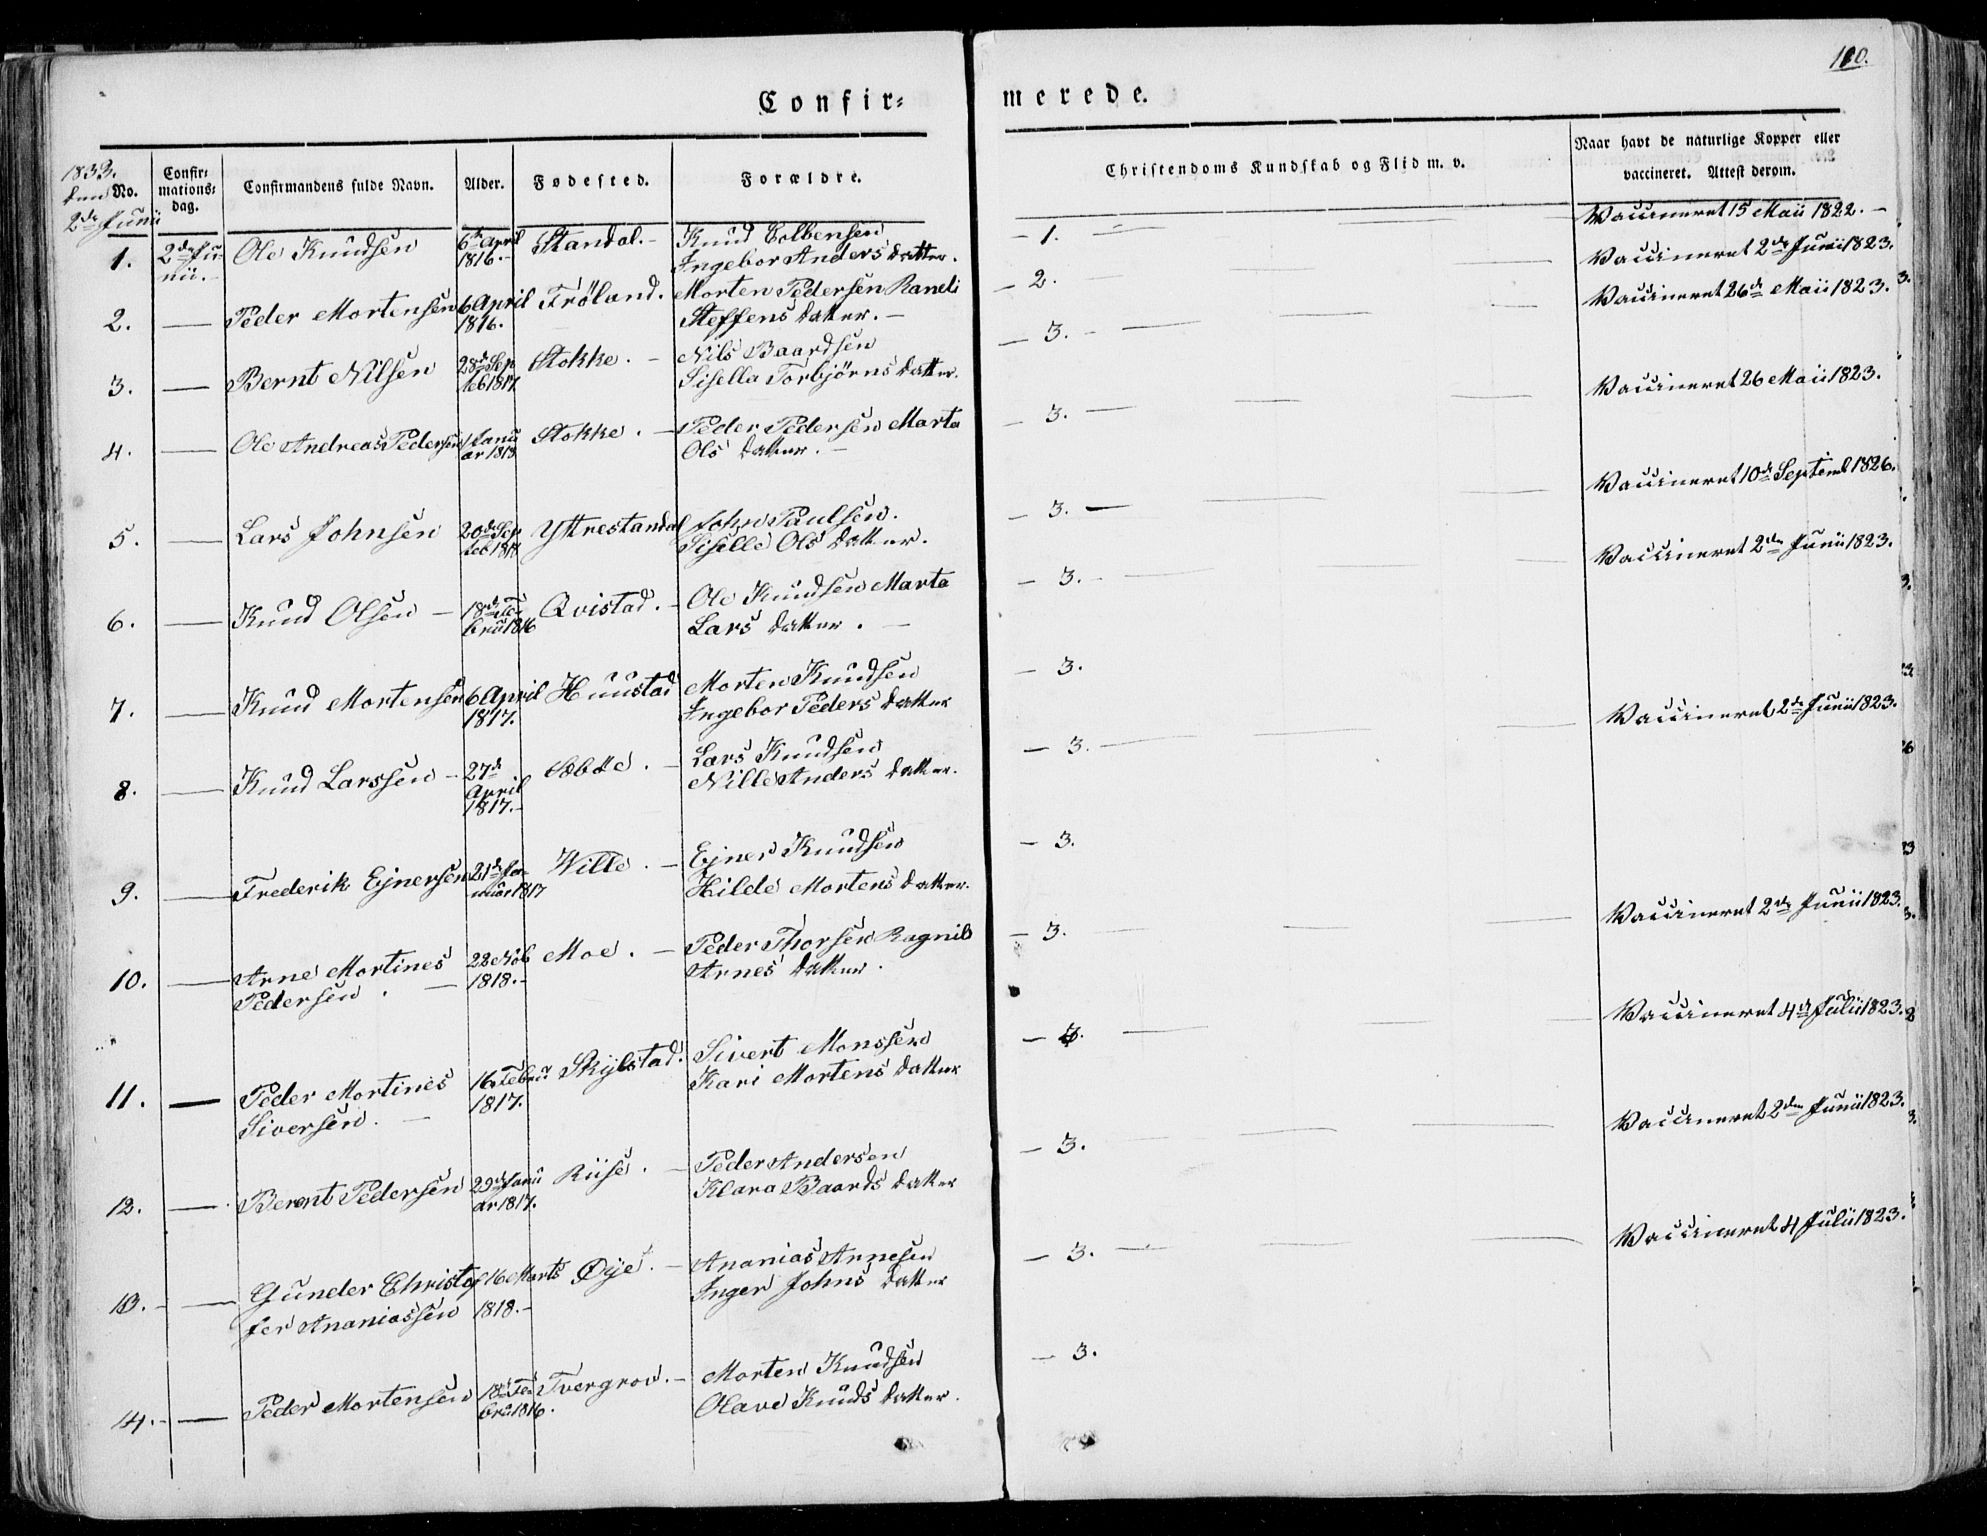 110.
Confir=
merede.
1833.
den
2de Junii
No.
Confir=
mations=
dag.
Confirmandens fulde Navn.
Alder.
Fødested.
Forældre.
Christendoms Kundskab og Flid m. v.
Naar havt de naturlige Kopper eller
vaccineret. Attest derom.
1. 2den Ju- Ole Knudsen 6te April Standal. – Knud Colbensen – 1. Vaccineret 15 Maii 1822. –
nii. – 1816. – Ingebor Anders datter.
2. — Peder Mortensen 6 April Trøland. Morten Pedersen Randi – 2. Vaccineret 2de Junii 1823.
1816. Steffens datter. –
3. — Bernt Nilsen 28de Sep Stokke. – Nils Baardsen – 3. – Vaccineret 26de Maii 1823.
teb 1817. Sisella Torbjørns datter.
4. — Ole Andreas Pedersen 1 Janu Stokke. – Peder Pedersen Marta – 3. Vaccineret 26 Maii 1823.
ar 1818 Ols datter. –
5. — Lars Johnsen 20de Sep Yttrestandal John Paulsen. – 3. – Vaccineret 10de Septemb 1826.
teb 1817 Siselle Ols datter.
6. — Knud Olsen – 18de Fe- Qvistad. – Ole Knudsen Marta – 3. – Vaccineret 2den Junii 1823.
bru 1816 Lars datter. –
7. — Knud Mortensen 6 April Huustad Morten Knudsen – 3.
1817. Ingebor Peders datter
8. — Knud Larssen – 27de Sæbøe. – Lars Knudsen – 3. Vaccineret 2de Junii 1823.
April Nille Anders datter.
1817. –
9. — Frederik Ejnersen 21de Ja- Wille. – Ejner Knudsen – 3.
nuar 1817 Hilde Mortens datter.
10. — Arne Mortines 22 Nob Moe. – Peder Thorsen Ragnild – 3. Vaccineret 2de Junii 1823.
Pedersen. – 1818. – Arnes datter.
11. — Peder Mortines 16 Febru Skylstad. Sivert Monssen Vaccineret 4de Julii 1823.
Siversen. – 1817. Kari Mortens datter
12. — Bernt Pedersen 29de Janu Riise. – Peder Andersen – 3. Vaccineret 2den Junii 1823.
ar 1817. Klara Baards datter
13. – — Gunder Christof 16 Marts Øye. – Ananias Arnesen – 3. Vaccineret 4 Julii 1823.
fer Ananiassen 1818. – Inger Johns datter
14. – — Peder Mortensen 18de Fe Tvergrov. – Morten Knudsen – 3.
bru 1816. Olave Knuds datter.